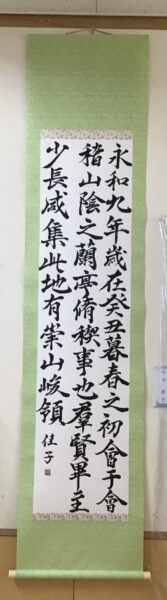 永和九年歳在癸丑暮春之初會于會
稽山陰之蘭亭脩稧事也羣賢畢至
少長咸集此地有崇山峻領
佳子